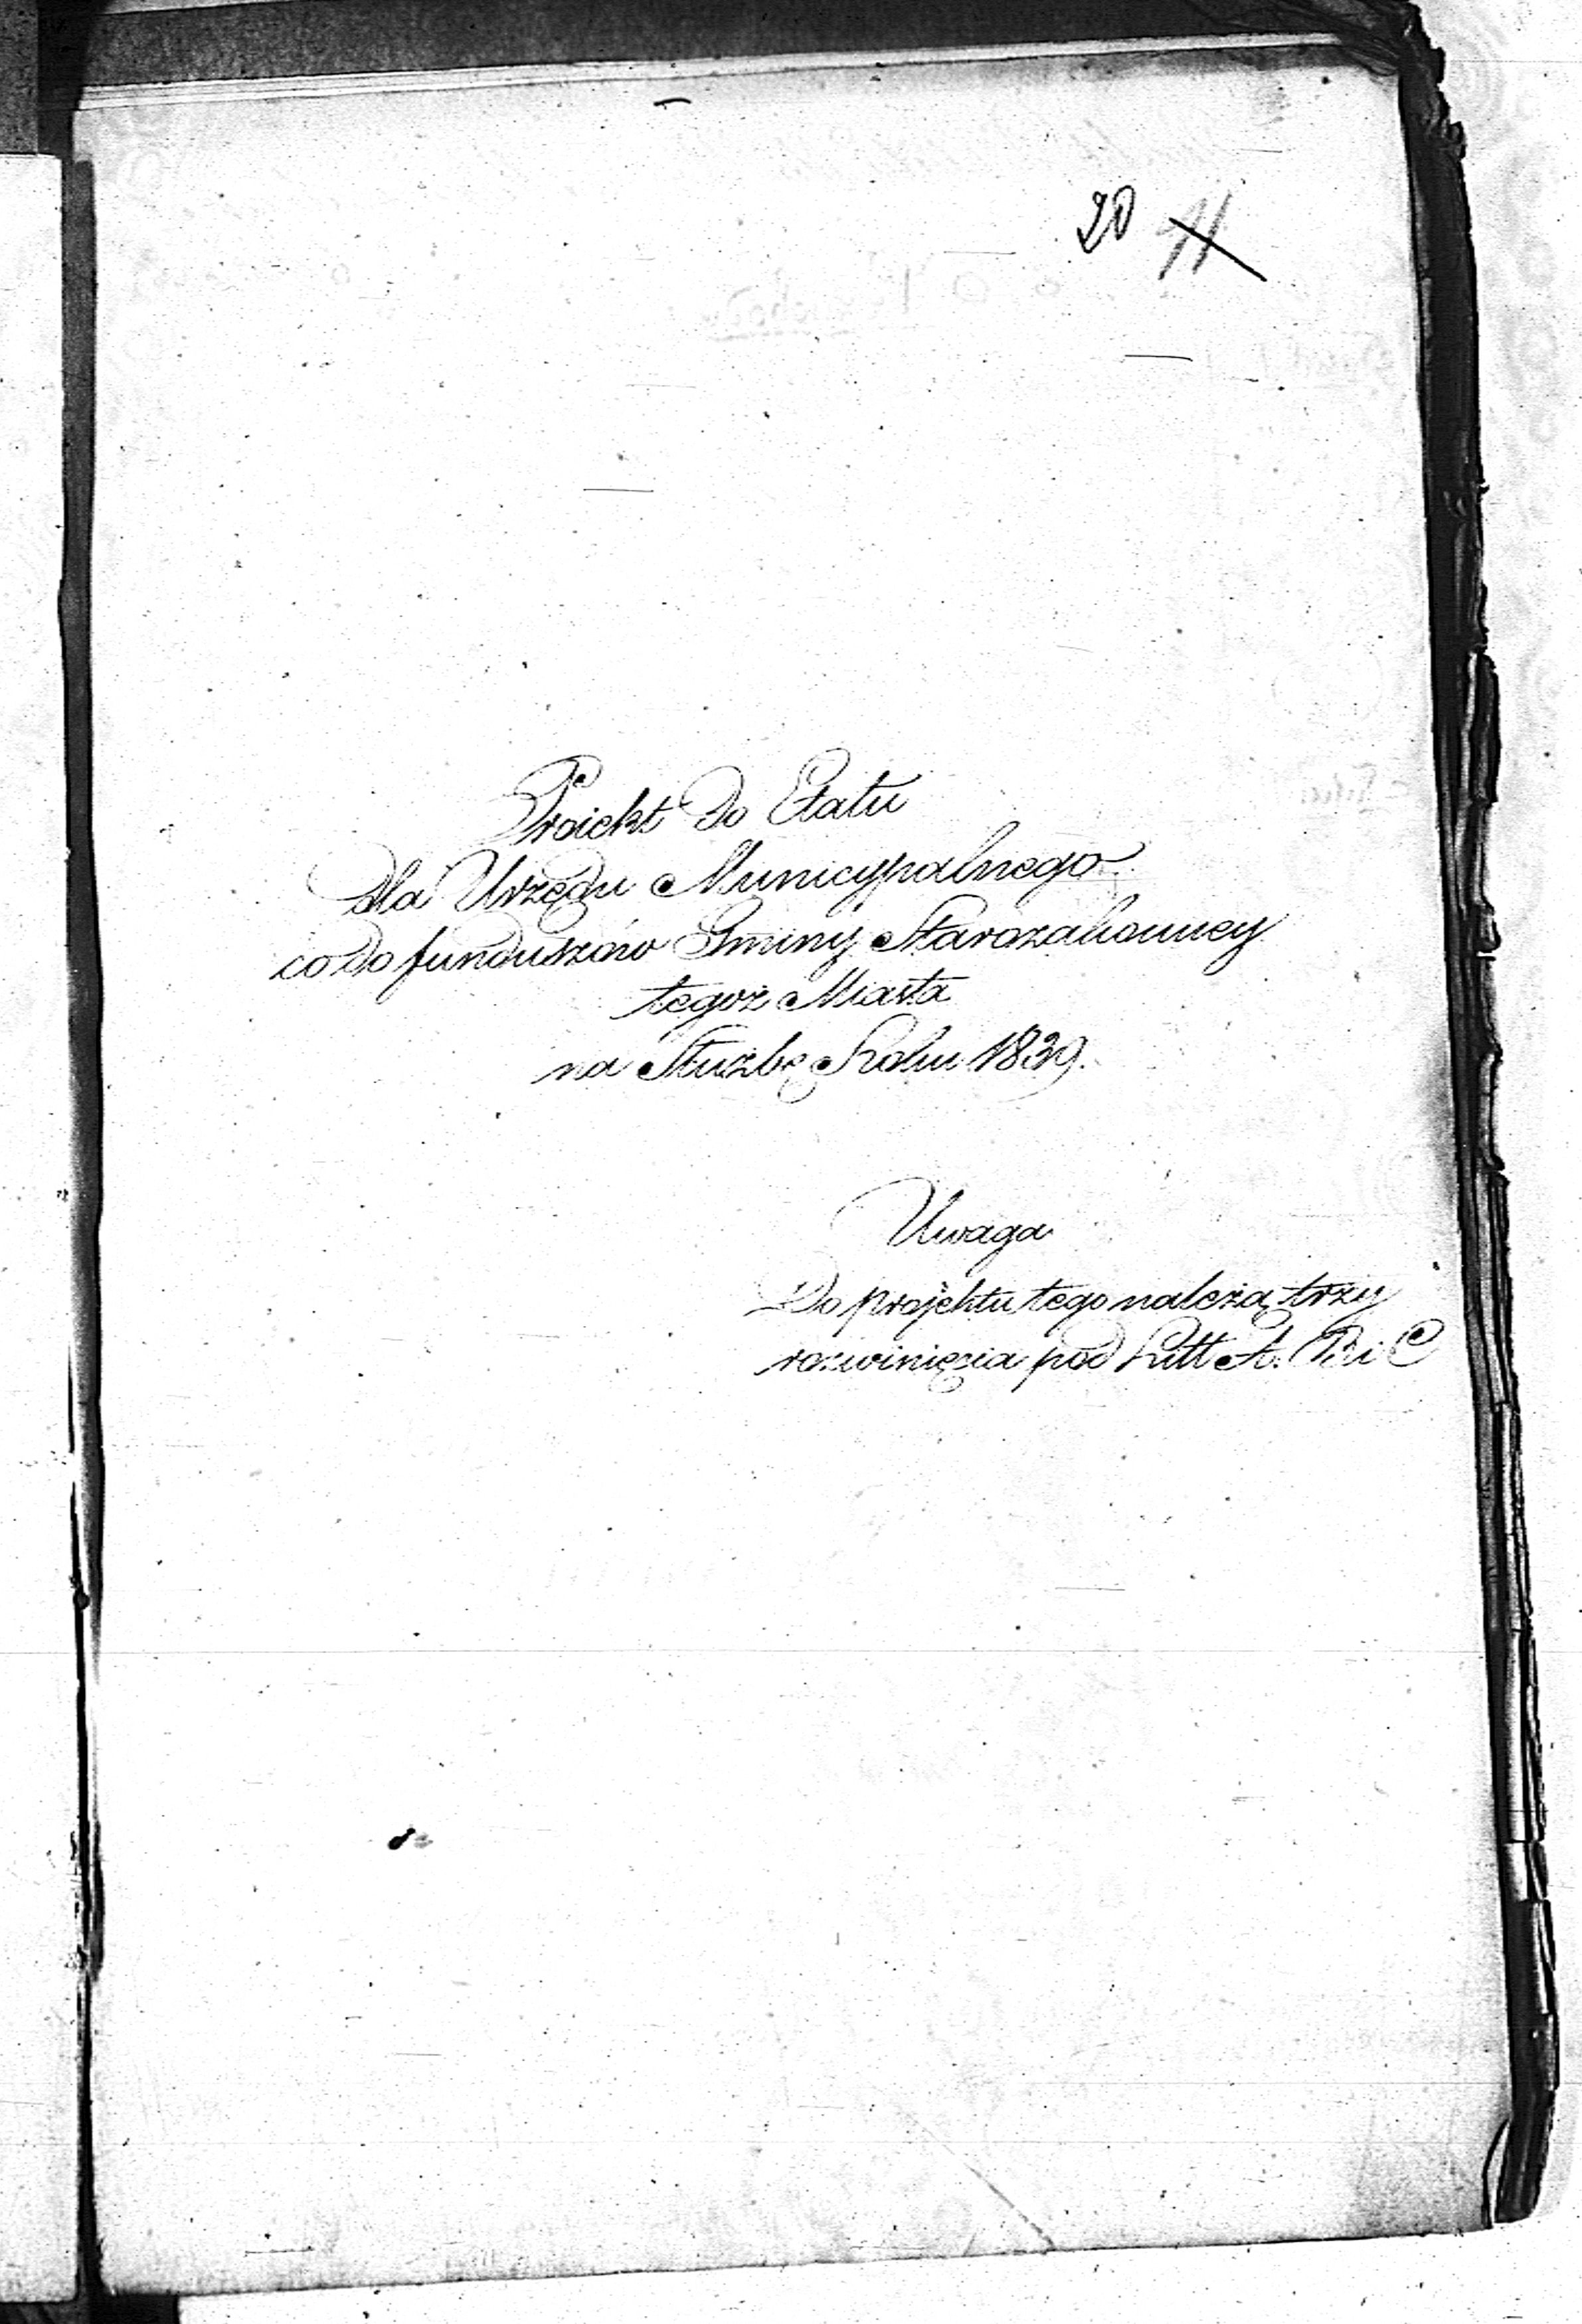 20 11
Proiekt do Etatu
dla Urzędu Municypalnego
co do funduszów Gminy Starozakonney
tegoż Miasta
na Służbę Roku 1839.
Uwaga
Do projektu tego należą trzy
rozwinięcia pod Litt A. B i C